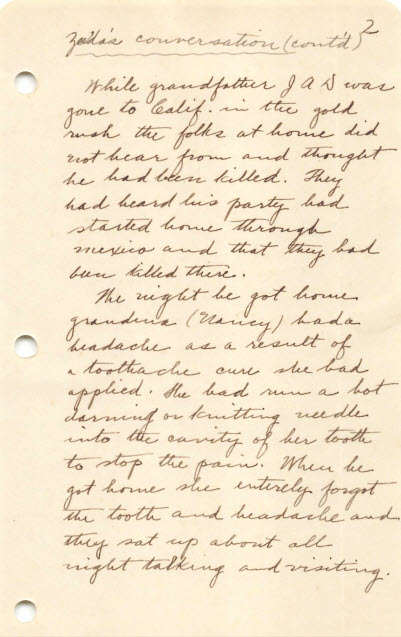 2
Zelda's conversation (cont'd)
While grandfather J A D was
gone to Calif. in the gold
rush the folks at home did
not hear from and thought
he had been killed. They
had heard his party had
started home through
Mexico and that they had
been killed there.
The night he got home
grandma (Nancy) had a
headache as a result of
a toothache cure she had
applied. She had run a hot
darning or knitting needle
into the cavity of her tooth
to stop the pain. When he
got home she entirely forgot
the tooth and headache and
they sat up about all
night talking and visiting.